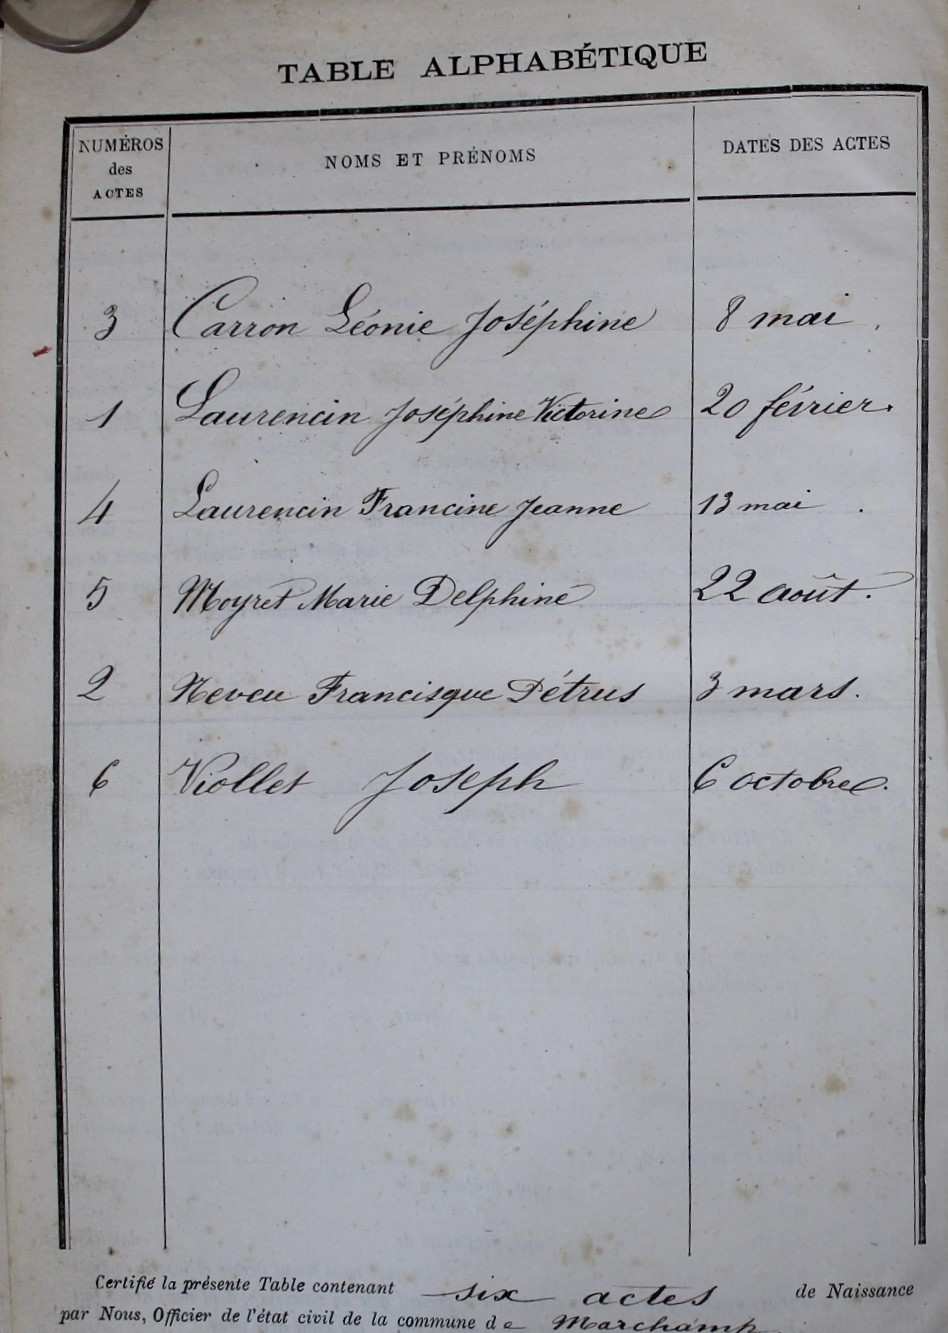 TABLE ALPHABÉTIQUE
NUMÉROS des ACTES NOMS ET PRÉNOMS DATES DES ACTES
3 Carron Léonie Joséphine 8 mai
1 Laurencin Joséphine Victorine 20 février.
4 Laurencin Francine Jeanne 13 mai .
5 Moyret Marie Delphine 22 août.
2 Neveu Francisque Pétrus 3 mars.
6 Viollet Joseph 6 octobre.
Certifié la présente Table contenant six actes de Naissance
par Nous, Officier de l'état civil de la commune de Marchamp